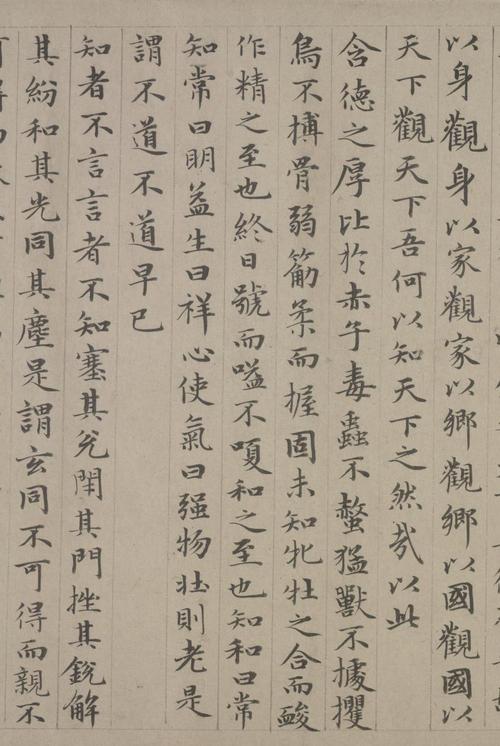 以身觀身以家觀家以鄉觀鄉以國觀國以
天下觀天下吾何以知天下之然哉以此
含德之厚比於赤子毒蟲不螫猛獸不據攫
鳥不搏骨弱筋柔而握固未知牝牡之合而酸
作精之至也終日號而嗌不嗄和之至也知和曰常
知常曰明益生曰祥心使氣曰强物壯則老是
謂不道不道早已
知者不言言者不知塞其兌閉其門挫其銳解
其紛和其光同其塵是謂玄同不可得而親不